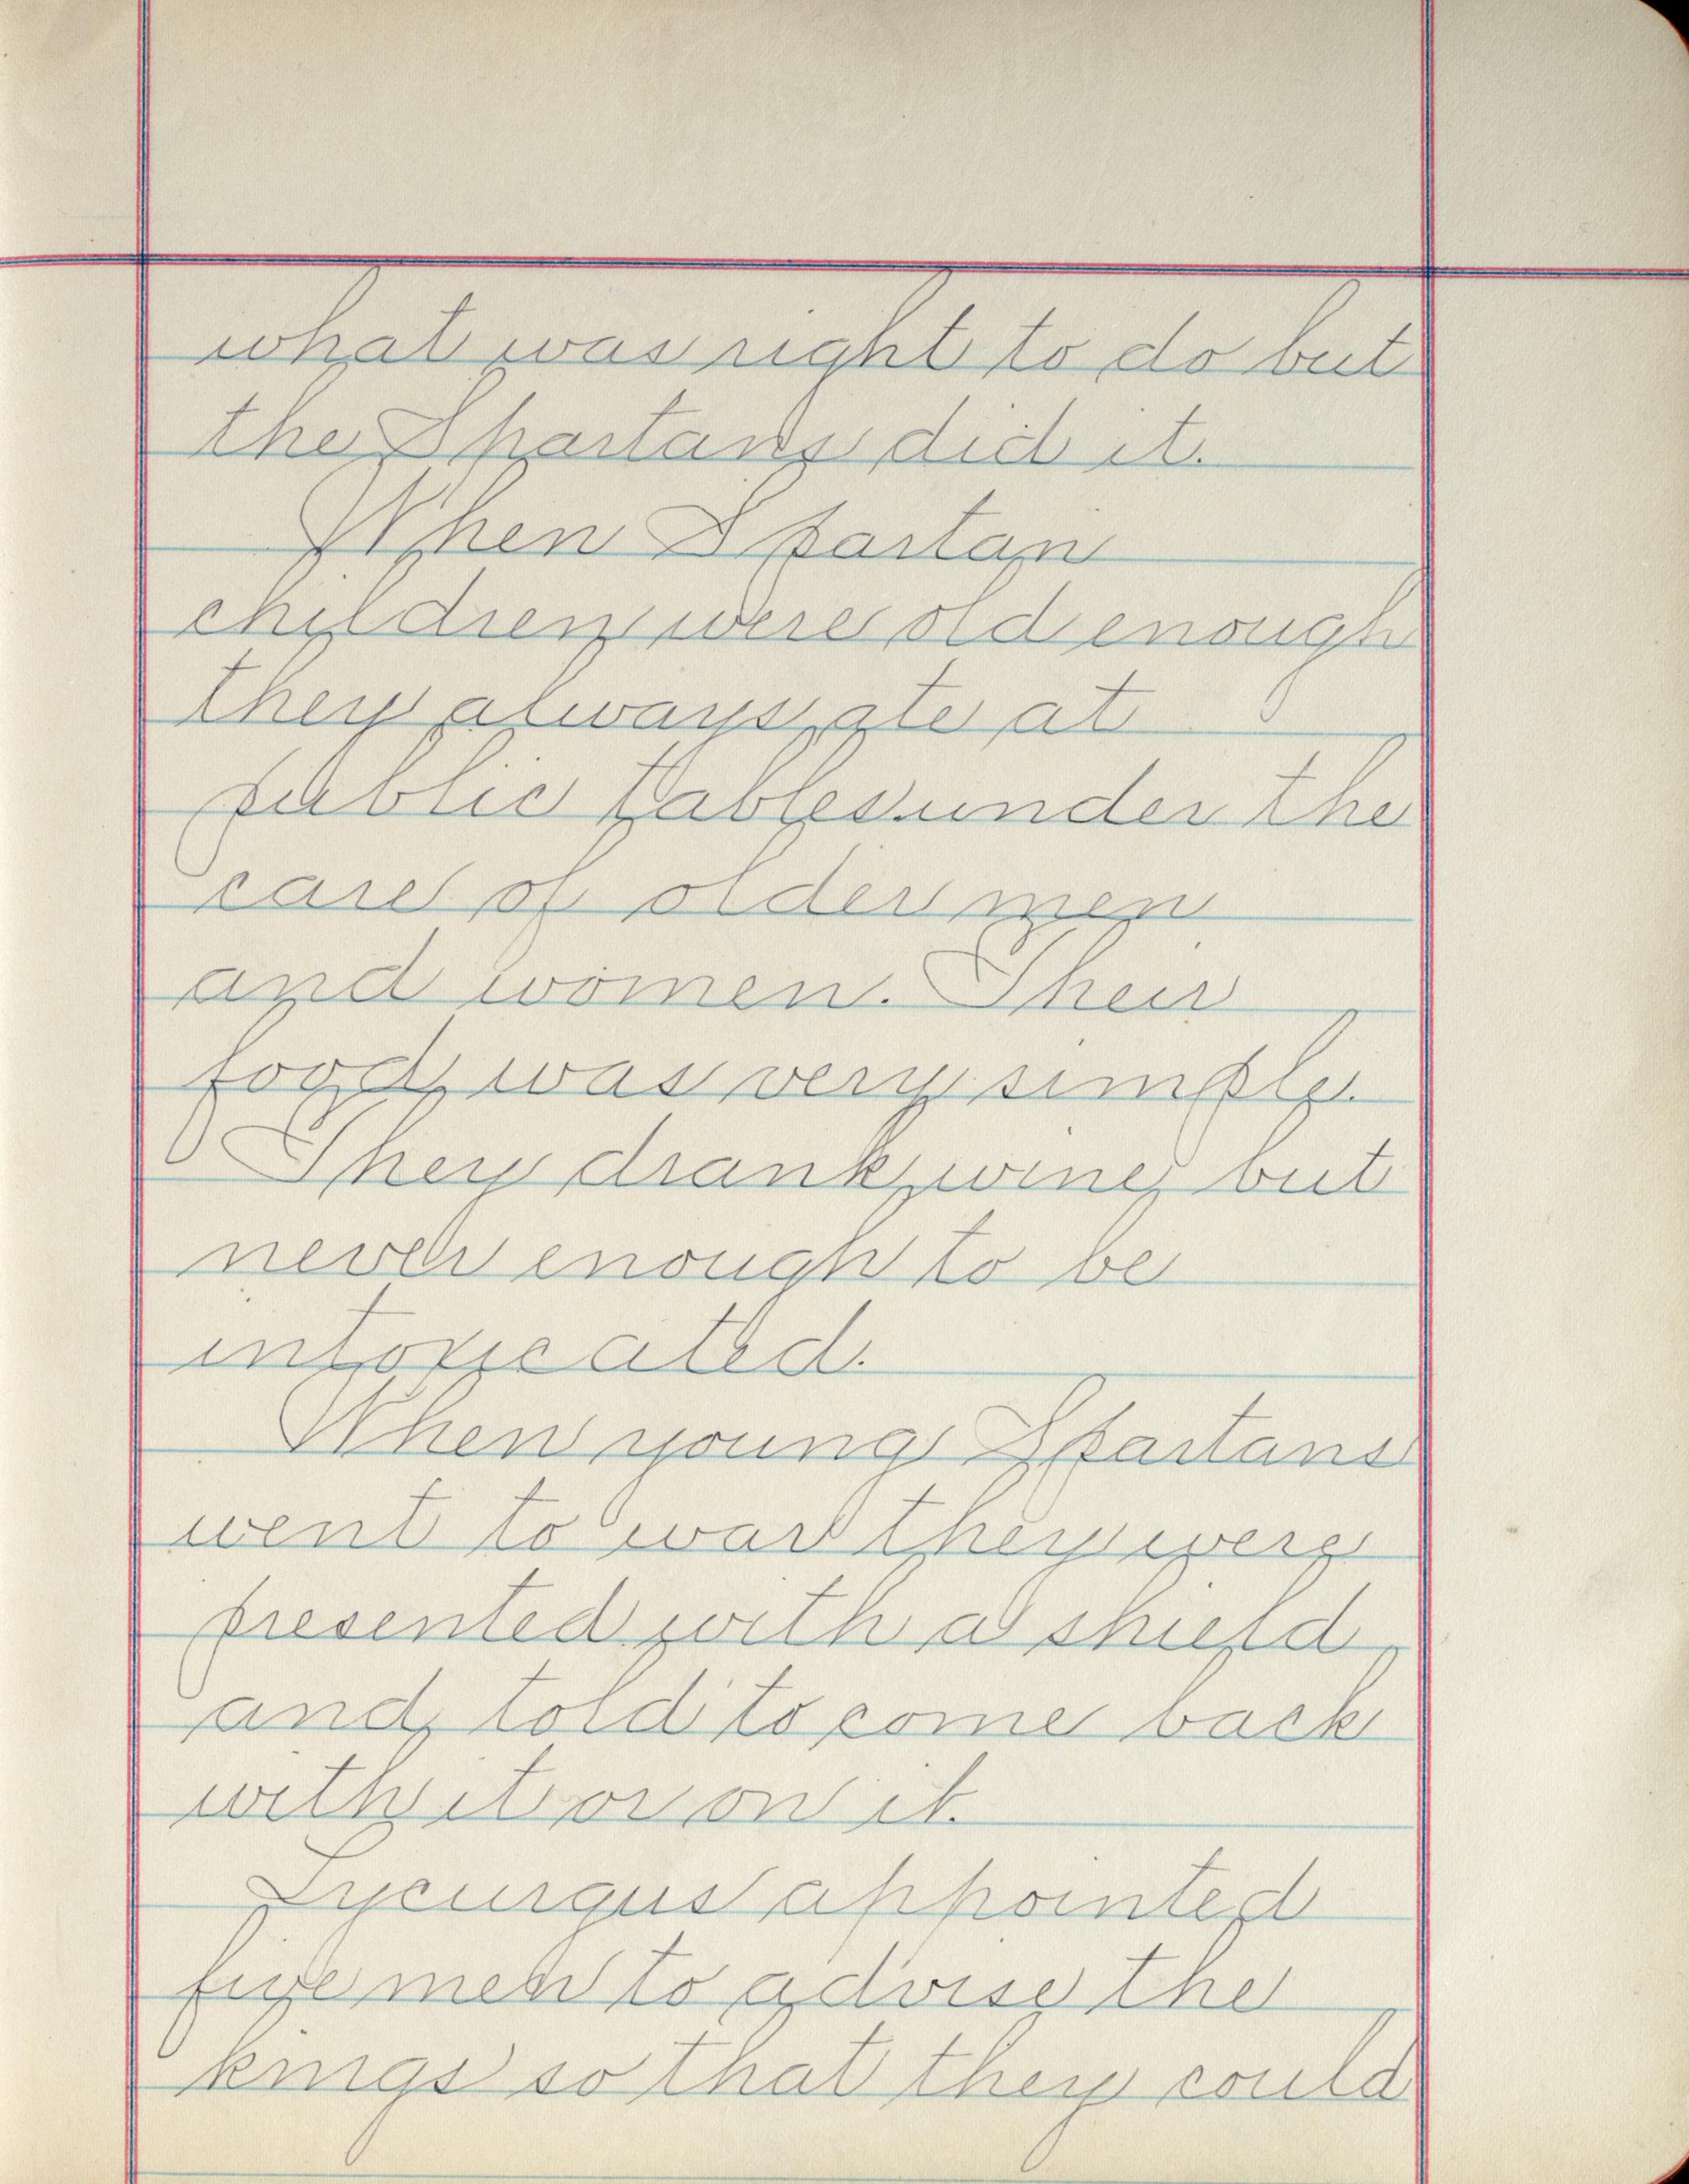 what was right to do but
the Spartans did it.
When Spartan
children were old enough
they always ate at
public tables under the
care of older men
and women. Their
food was very simple.
They drank wine, but
never enough to be
intoxicated.
When young Spartans
went to war they were
presented with a shield
and told to come back
with it or on it.
Lycurgus appointed
five men to advise the
kings so that they could